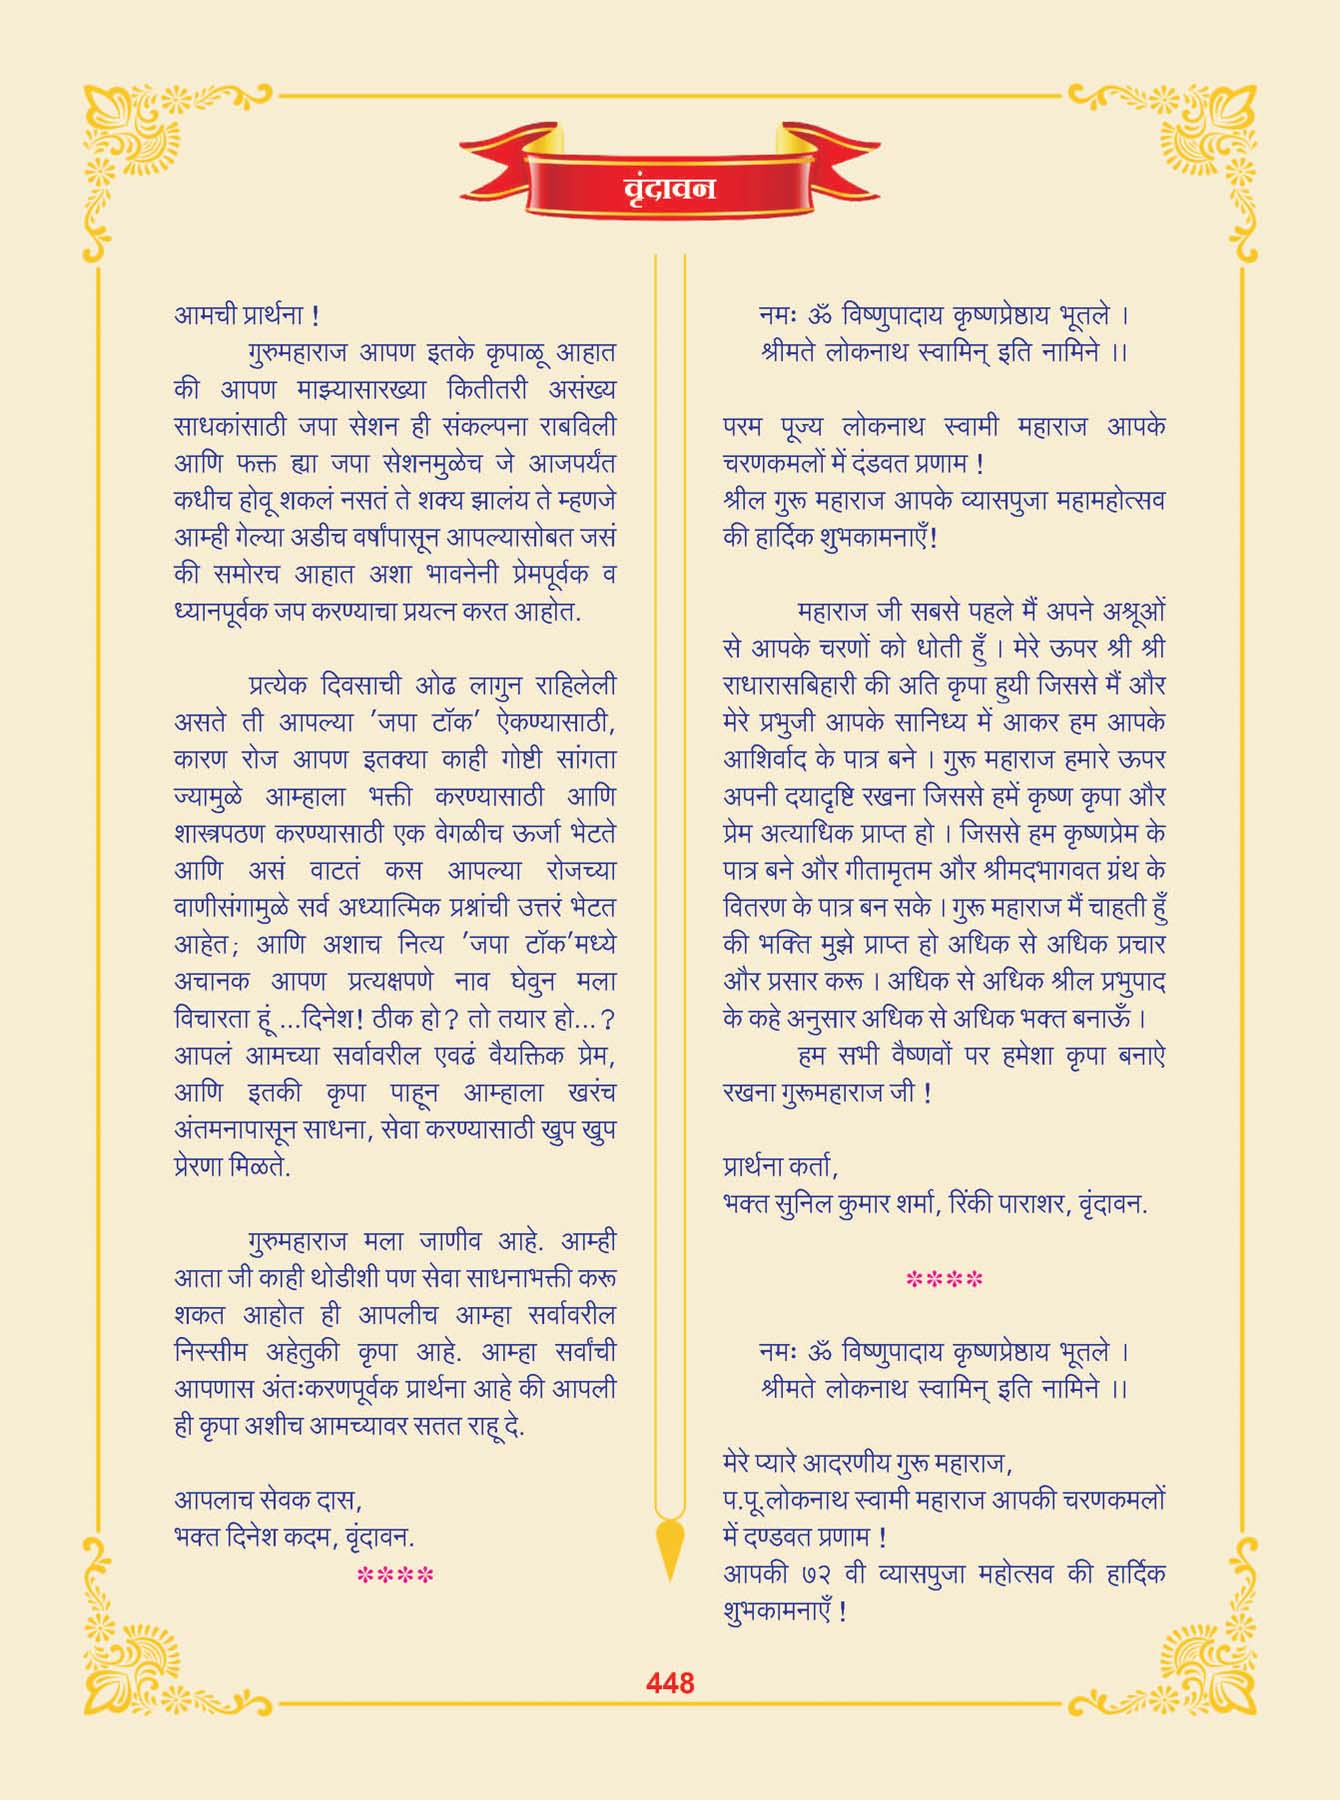 वृंदावन
आमची प्रार्थना !
गुरुमहाराज आपण इतके कृपाळू आहात
की आपण माझ्यासारख्या कितीतरी असंख्य
साधकांसाठी जपा सेशन ही संकल्पना राबविली
आणि फक्त ह्या जपा सेशनमुळेच जे आजपर्यंत
कधीच होवू शकलं नसतं ते शक्य झालंय ते म्हणजे
आम्ही गेल्या अडीच वर्षांपासून आपल्यासोबत जसं
की समोरच आहात अशा भावनेनी प्रेमपूर्वक व
ध्यानपूर्वक जप करण्याचा प्रयत्न करत आहोत.
प्रत्येक दिवसाची ओढ लागुन राहिलेली
असते ती आपल्या 'जपा टॉक' ऐकण्यासाठी,
कारण रोज आपण इतक्या काही गोष्टी सांगता
ज्यामुळे आम्हाला भक्ती करण्यासाठी आणि
शास्त्रपठण करण्यासाठी एक वेगळीच ऊर्जा भेटते
आणि असं वाटतं कस आपल्या रोजच्या
वाणीसंगामुळे सर्व अध्यात्मिक प्रश्नांची उत्तरं भेटत
आहेत; आणि अशाच नित्य 'जपा टॉक'मध्ये
अचानक आपण प्रत्यक्षपणे नाव घेवुन मला
विचारता हूं ...दिनेश! ठीक हो? तो तयार हो...?
आपलं आमच्या सर्वावरील एवढं वैयक्तिक प्रेम,
आणि इतकी कृपा पाहून आम्हाला खरंच
अंतमनापासून साधना, सेवा करण्यासाठी खुप खुप
प्रेरणा मिळते.
गुरुमहाराज मला जाणीव आहे. आम्ही
आता जी काही थोडीशी पण सेवा साधनाभक्ती करू
शकत आहोत ही आपलीच आम्हा सर्वावरील
निस्सीम अहेतुकी कृपा आहे. आम्हा सर्वांची
आपणास अंतःकरणपूर्वक प्रार्थना आहे की आपली
ही कृपा अशीच आमच्यावर सतत राहू दे.
आपलाच सेवक दास,
भक्त दिनेश कदम, वृंदावन.
****
नमः ॐ विष्णुपादाय कृष्णप्रेष्ठाय भूतले ।
श्रीमते लोकनाथ स्वामिन् इति नामिने ।।
परम पूज्य लोकनाथ स्वामी महाराज आपके
चरणकमलों में दंडवत प्रणाम !
श्रील गुरू महाराज आपके व्यासपुजा महामहोत्सव
की हार्दिक शुभकामनाएँ!
महाराज जी सबसे पहले मैं अपने अश्रूओं
से आपके चरणों को धोती हुँ । मेरे ऊपर श्री श्री
राधारासबिहारी की अति कृपा हुयी जिससे मैं और
मेरे प्रभुजी आपके सानिध्य में आकर हम आपके
आशिर्वाद के पात्र बने । गुरू महाराज हमारे ऊपर
अपनी दयादृष्टि रखना जिससे हमें कृष्ण कृपा और
प्रेम अत्याधिक प्राप्त हो । जिससे हम कृष्णप्रेम के
पात्र बने और गीतामृतम और श्रीमदभागवत ग्रंथ के
वितरण के पात्र बन सके । गुरू महाराज मैं चाहती हुँ
की भक्ति मुझे प्राप्त हो अधिक से अधिक प्रचार
और प्रसार करू । अधिक से अधिक श्रील प्रभुपाद
के कहे अनुसार अधिक से अधिक भक्त बनाऊँ ।
हम सभी वैष्णवों पर हमेशा कृपा बनाऐ
रखना गुरूमहाराज जी !
प्रार्थना कर्ता,
भक्त सुनिल कुमार शर्मा, रिंकी पाराशर, वृंदावन.
****
नमः ॐ विष्णुपादाय कृष्णप्रेष्ठाय भूतले ।
श्रीमते लोकनाथ स्वामिन् इति नामिने ।।
मेरे प्यारे आदरणीय गुरू महाराज,
प.पू.लोकनाथ स्वामी महाराज आपकी चरणकमलों
में दण्डवत प्रणाम !
आपकी ७२ वी व्यासपुजा महोत्सव की हार्दिक
शुभकामनाएँ !
448